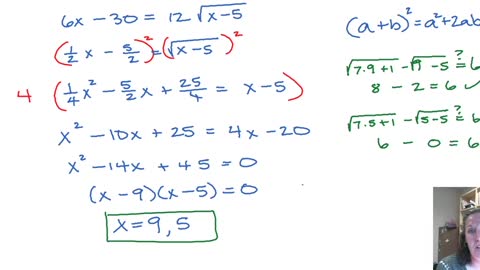 6x - 30 = 12 √(x-5)
(1/2 x - 5/2)² = (√(x-5))²
4 (1/4 x² - 5/2 x + 25/4 = x - 5)
x² - 10x + 25 = 4x - 20
x² - 14x + 45 = 0
(x - 9)(x - 5) = 0
x = 9, 5
(a+b)² = a² + 2ab
√(7·9+1) - √(9-5) ≟ 6
8 - 2 = 6 ✓
√(7·5+1) - √(5-5) ≟ 6
6 - 0 = 6